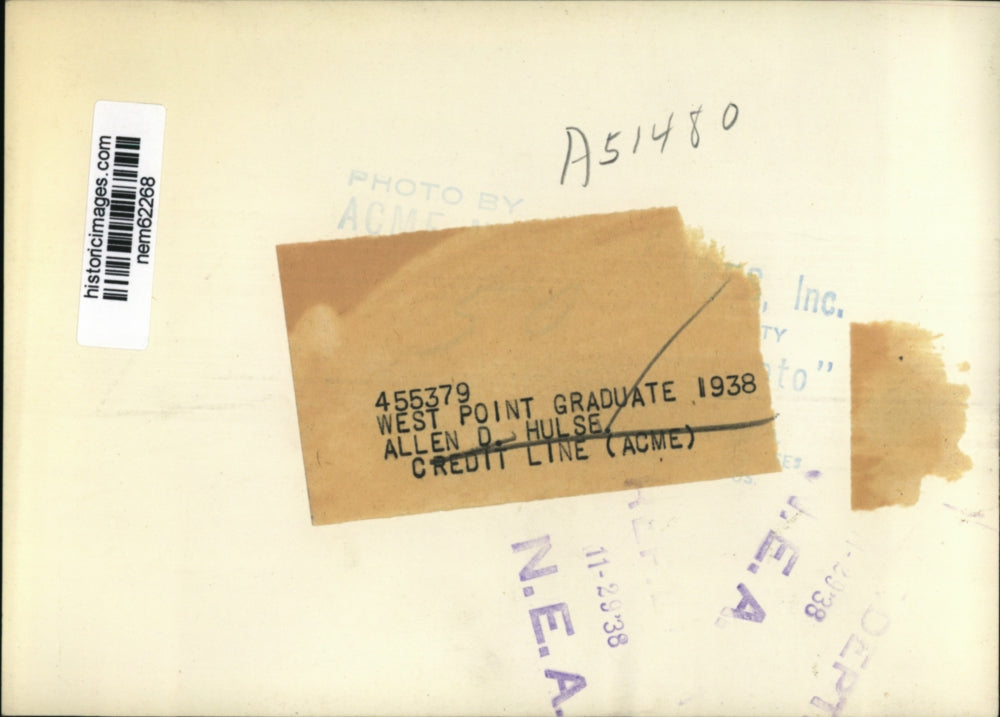 A51480
historicimages.com
nem62268
PHOTO BY
ACME
, Inc.
TY
to"
455379
WEST POINT GRADUATE 1938
ALLEN D. HULSE.
CREDIT LINE (ACME)
N.E.A.
11-29'38
.E.A
-29'38
DEPT